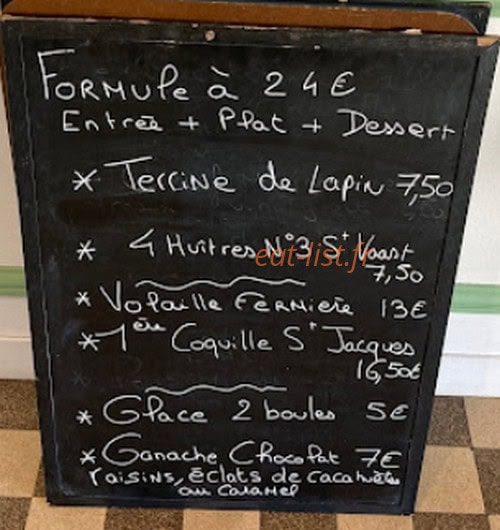 FORMULE à 24€
Entrée + Plat + Dessert
* Terrine de Lapin 7,50
* 4 Huîtres N°3 St Vaast
7,50
eat-list.fr
* Volaille Fermière 13€
* 1ère Coquille St Jacques
16,50€
* Glace 2 boules 5€
* Ganache Chocolat 7€
raisins, éclats de cacahuètes
au caramel